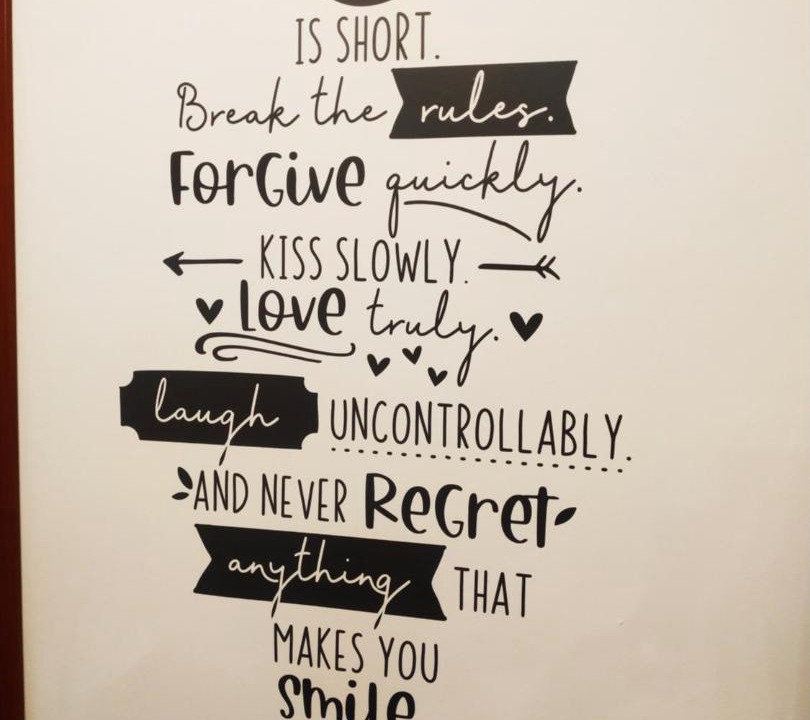 IS SHORT.
Break the rules.
ForGive quickly.
KISS SLOWLY.
Love truly.
laugh UNCONTROLLABLY.
AND NEVER ReGret
anything THAT
MAKES YOU
smile